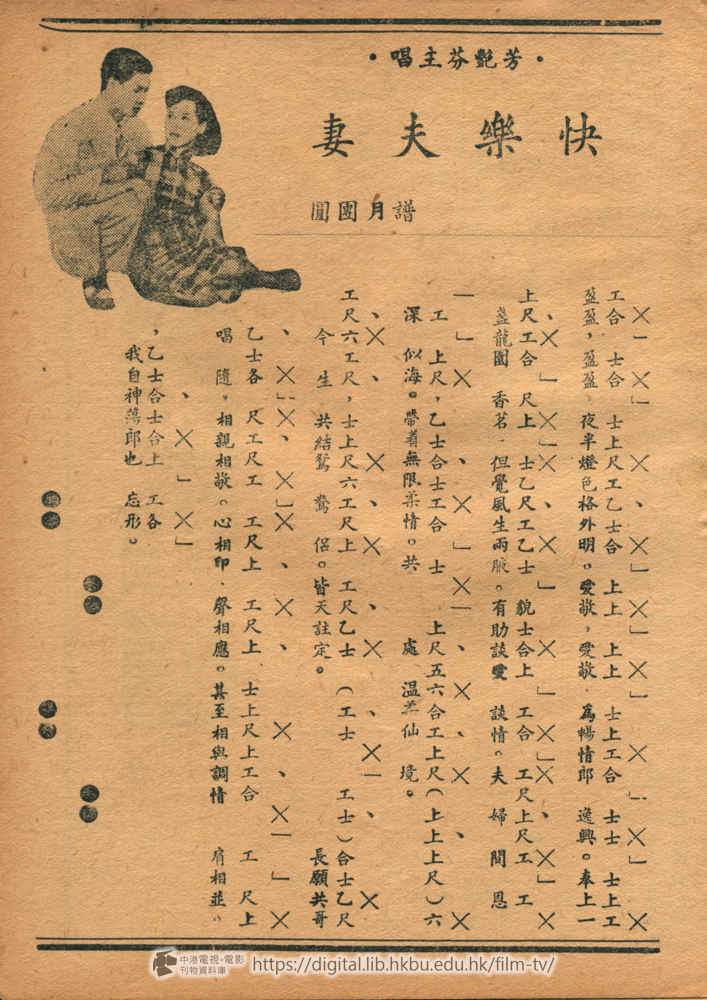 •芳艷芬主唱•
快樂夫妻
譜月團圓
工合 士合 士上尺工乙士合 上上 上上 士上工合 士士 士上工
盈盈，盈盈。夜半燈色格外明。愛敬，愛敬．為暢情郎 逸興。奉上一
上尺工合 尺上 士乙尺工乙士 貌士合上 工合 工尺上尺工 工
盞龍團 香茗．但覺風生兩腋。有助談愛 談情。夫婦間恩
工 上尺，乙士合士工合 士 上尺五六合工上尺（上上上尺）六
深 似海。帶着無限柔情。共 處 温柔仙 境。
工尺六工尺，士上尺六工尺上 工尺乙士（工士 工士）合士乙尺
今生 共結鴛鴦 侶。皆天註定。 長願共哥
乙士各 尺工尺工 工尺上 工尺上 士上尺上工合 工 尺上
唱隨，相親相敬。心相印．聲相應。甚至相與調情 肩相並。
，乙士合士合上 工各
我自神蕩郎也 忘形。
中港電視・電影
刊物資料庫
https://digital.lib.hkbu.edu.hk/film-tv/